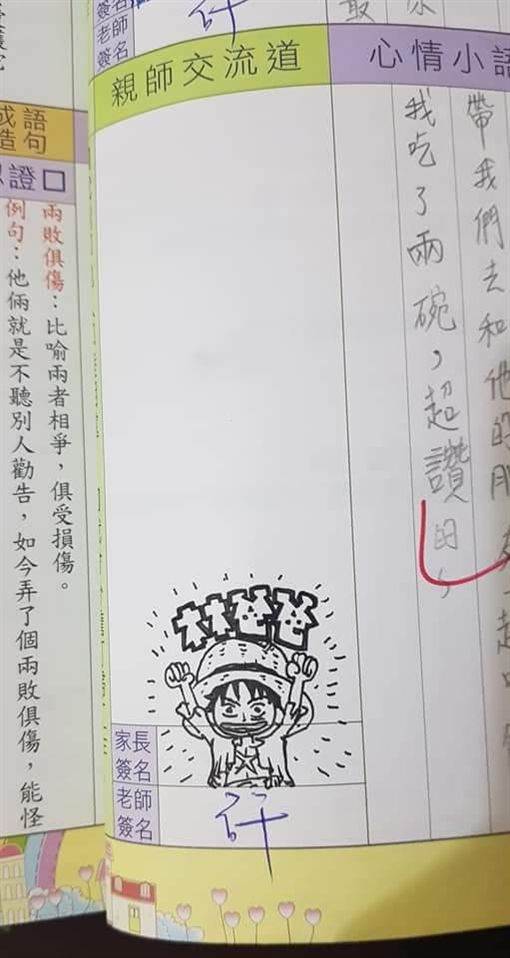 簽名
老師
簽名
許
最
心情小語
帶我們去和他的朋友一起
我吃了兩碗，超讚的，
親師交流道
林爸爸
家長
簽名
老師
簽名
許
成語
造句
證口
兩敗俱傷：比喻兩者相爭，俱受損傷。
例句：他倆就是不聽別人勸告，如今弄了個兩敗俱傷，能怪